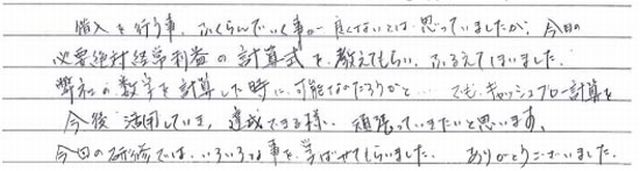 借入を行う事、ふくらんでいく事が良くないとは思っていましたが、今日の
必要絶対経常利益の計算式を教えてもらい、ふるえてしまいました。
弊社の数字を計算した時に、可能なのだろうかと… でも、キャッシュフロー計算を
今後活用していき、達成できる様、頑張っていきたいと思います。
今回の研修では、いろいろな事を学ばせてもらいました。ありがとうございました。